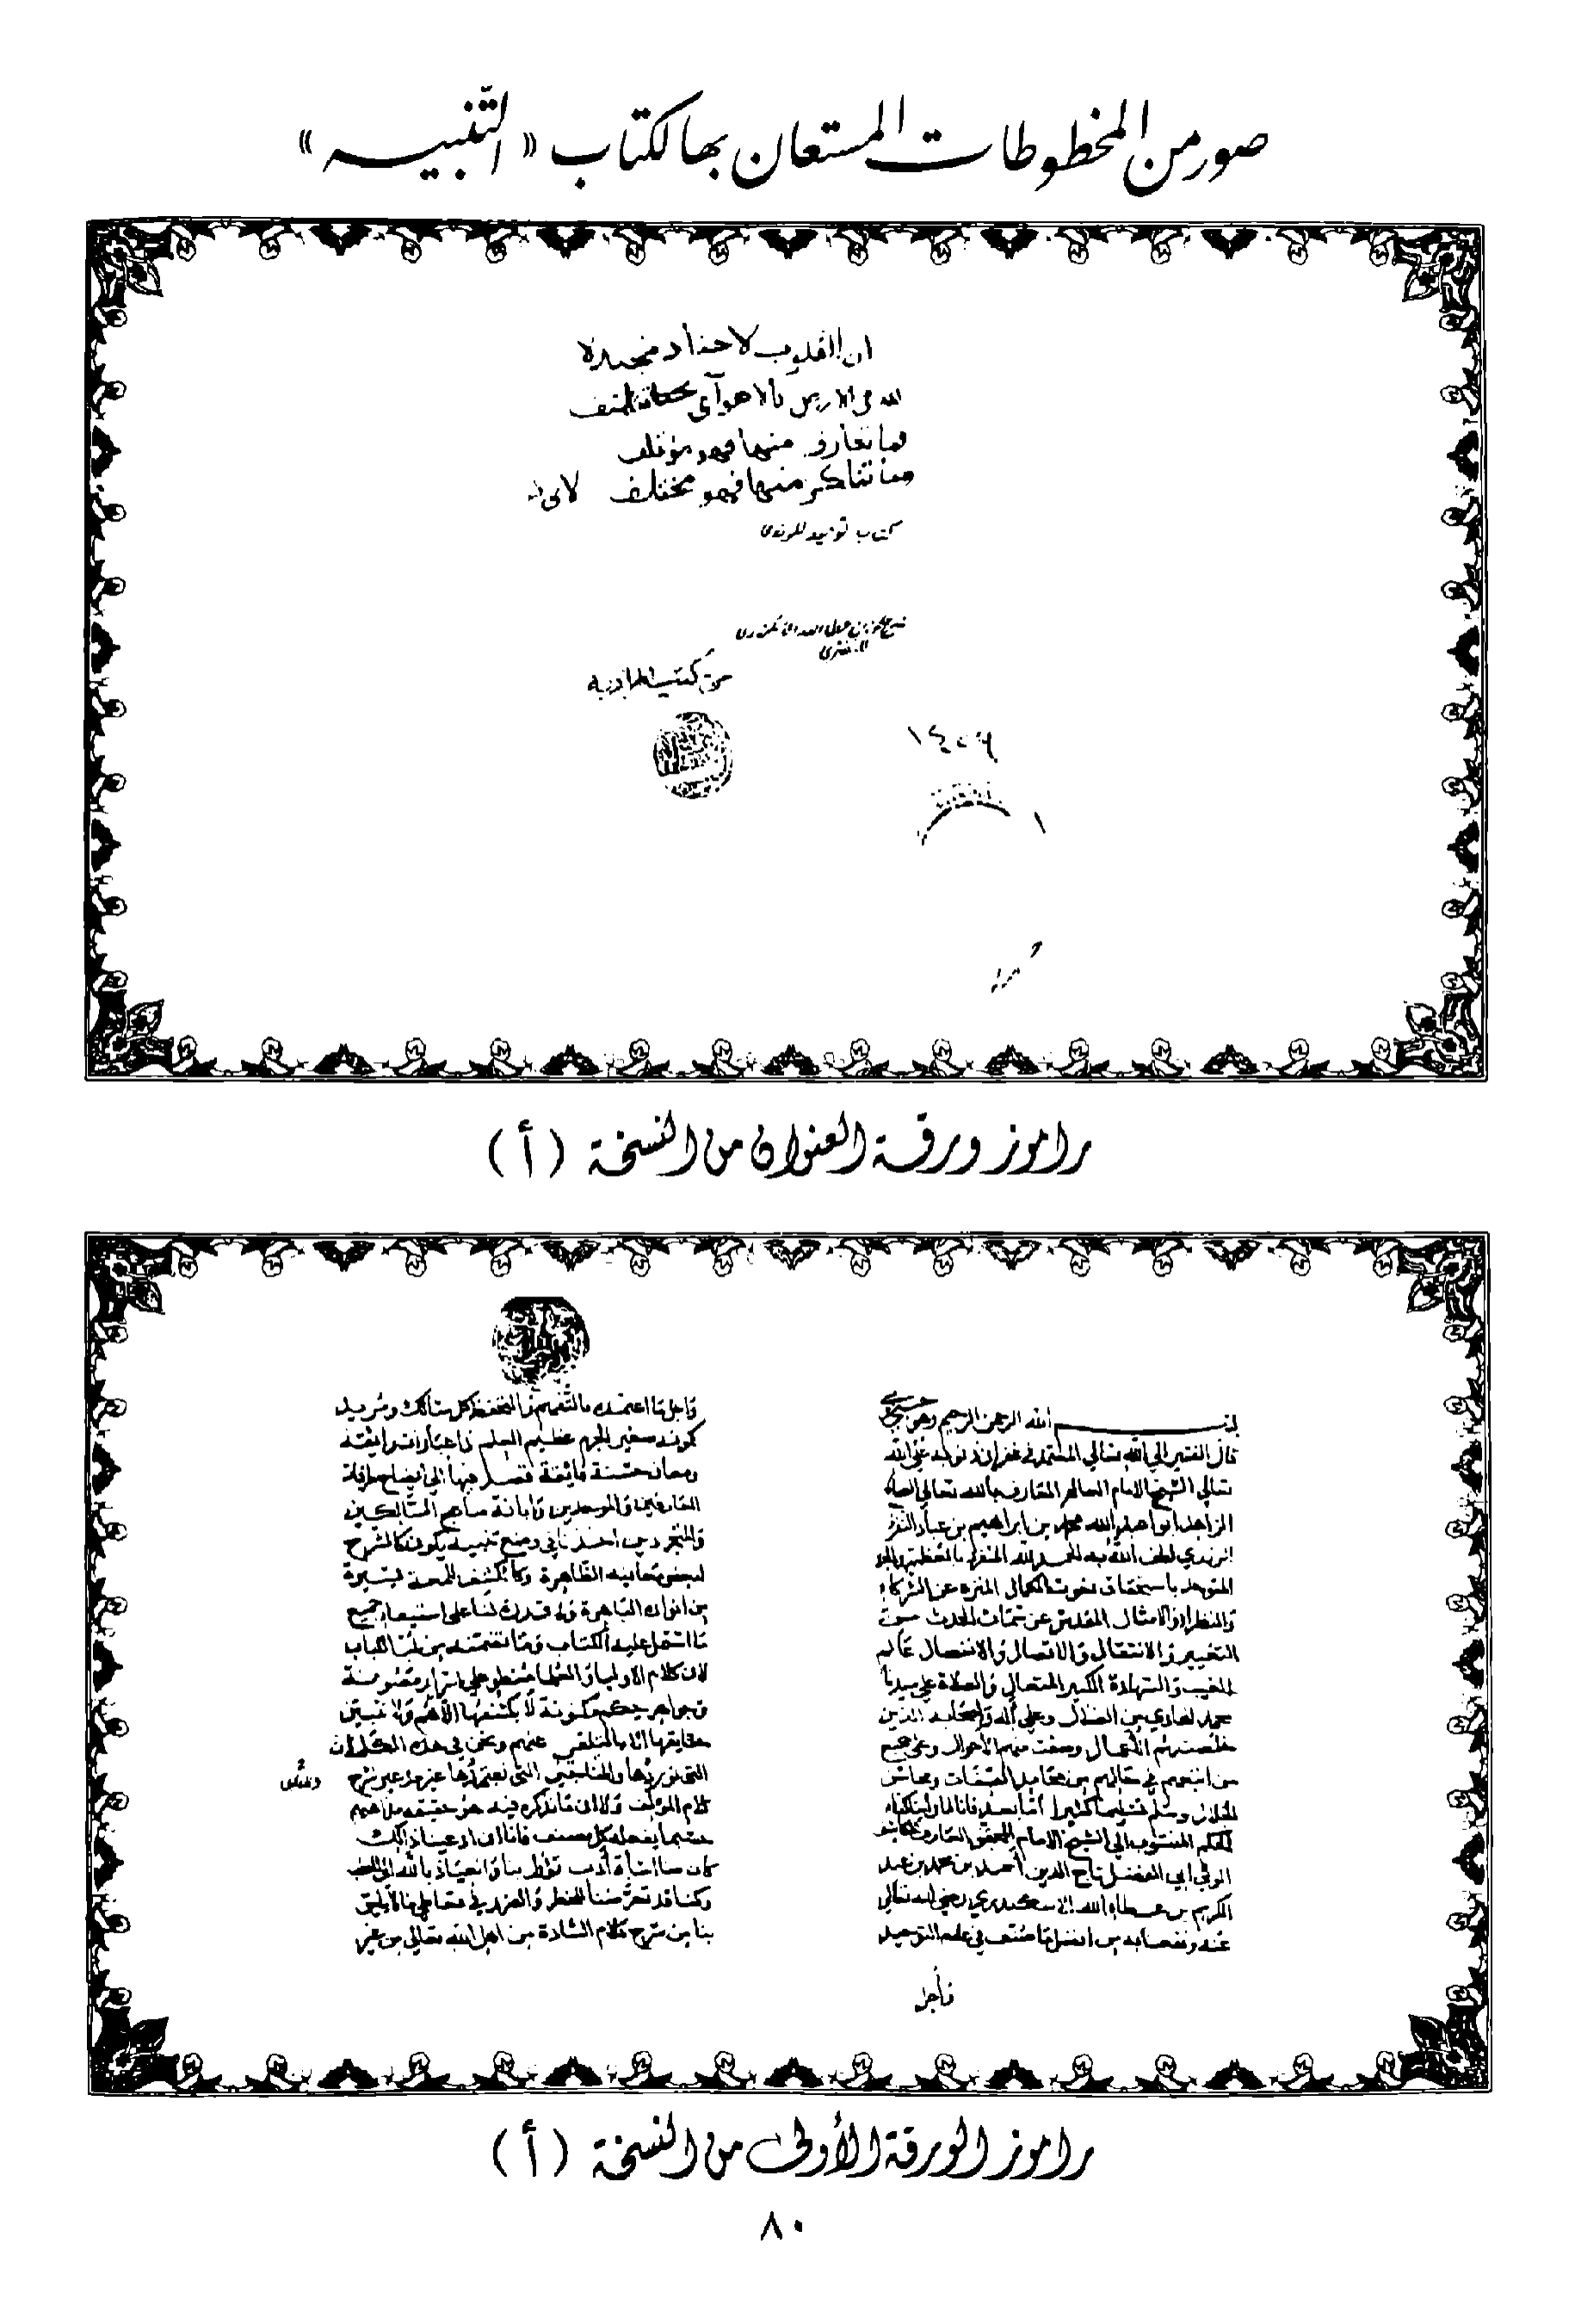 صور من المخطوطات المستعان بها لكتاب «التنبيه»
ان القلوب لاجناد مجندة
لله في الارض بالاهوآء تختلف
فما تعارف منها فهو مؤتلف
وما تناكر منها فهو مختلف
كتاب
١٤٠٦
١
راموز ورقة العنوان من النسخة (أ)
بسم الله الرحمن الرحيم وهو حسبي
قال الفقير الي الله تعالي المعتمد في غفران ذنوبه علي الله
تعالي الشيخ الامام العالم العارف بالله تعالي
الزاهد ابو عبد الله محمد بن ابراهيم بن عباد النفزي
الرندي لطف الله به الحمد لله المنفرد بالعظمة
المتوحد باستحقاق نعوت الكمال المنزه عن الشركاء
والنظراء والامثال المقدس عن سمات الحدث من
التغيير والانتقال والاتصال والانفصال عالم
الغيب والشهادة الكبير المتعالي والصلاة علي سيدنا
محمد الهادي من الضلال وعلي آله واصحابه الذين
خلصت لهم الأعمال وصفت منهم الأحوال وعلي جميع
من اتبعهم في مقالهم من محامد الصفات ومحاسن
الخلال وسلم تسليما كثيرا اما بعد فانا لما راينا كتاب
الحكم المنسوب الي الشيخ الامام المحقق العارف
ابي الفضل تاج الدين أحمد بن محمد بن عبد
الكريم بن عطاء الله الاسكندري رضي الله تعالي
عنه ونفعنا به من افضل ما صنف في علم التوحيد
وأجل
وأجل ما اعتمده بالتفهم والتحفظ كل سالك ومريد
كونه صغير الجرم عظيم العلم ذا عبارات رائقة
ومعان حسنة فائقة قصد فيها الي ايضاح طريقة
العارفين والموحدين وابانة مناهج السالكين
والمتجردين اخذنا في وضع تنبيه يكون كالشرح
لبعض معانيه الظاهرة وكالكشف للمعة يسيرة
من انواره الباهرة ولا قدرة لنا علي استيعاب جميع
ما اشتمل عليه الكتاب وما تضمنه من لباب اللباب
لان كلام الاولياء والعلماء منطو علي اسرار مصونة
وجواهر حكم مكنونة لا يكشفها الا هم ولا تتبين
حقايقها الا بالتلقي عنهم ونحن في هذه الكلمات
التي نوردها والمناحي التي نعتمدها غير مدعين شرح
كلام المؤلف ولا ان ما نذكره فيه هو حقيقة مذاهبهم
حسبما يفعله كل مصنف فانا ان ادعينا ذلك
كان منا اساءة أدب
وكنا قد تعرضنا للخطر والضرر في تعاطي ما لا يليق
بنا من شرح كلام السادة من اهل الله تعالي من غير
راموز الورقة الأولى من النسخة (أ)
٨٠